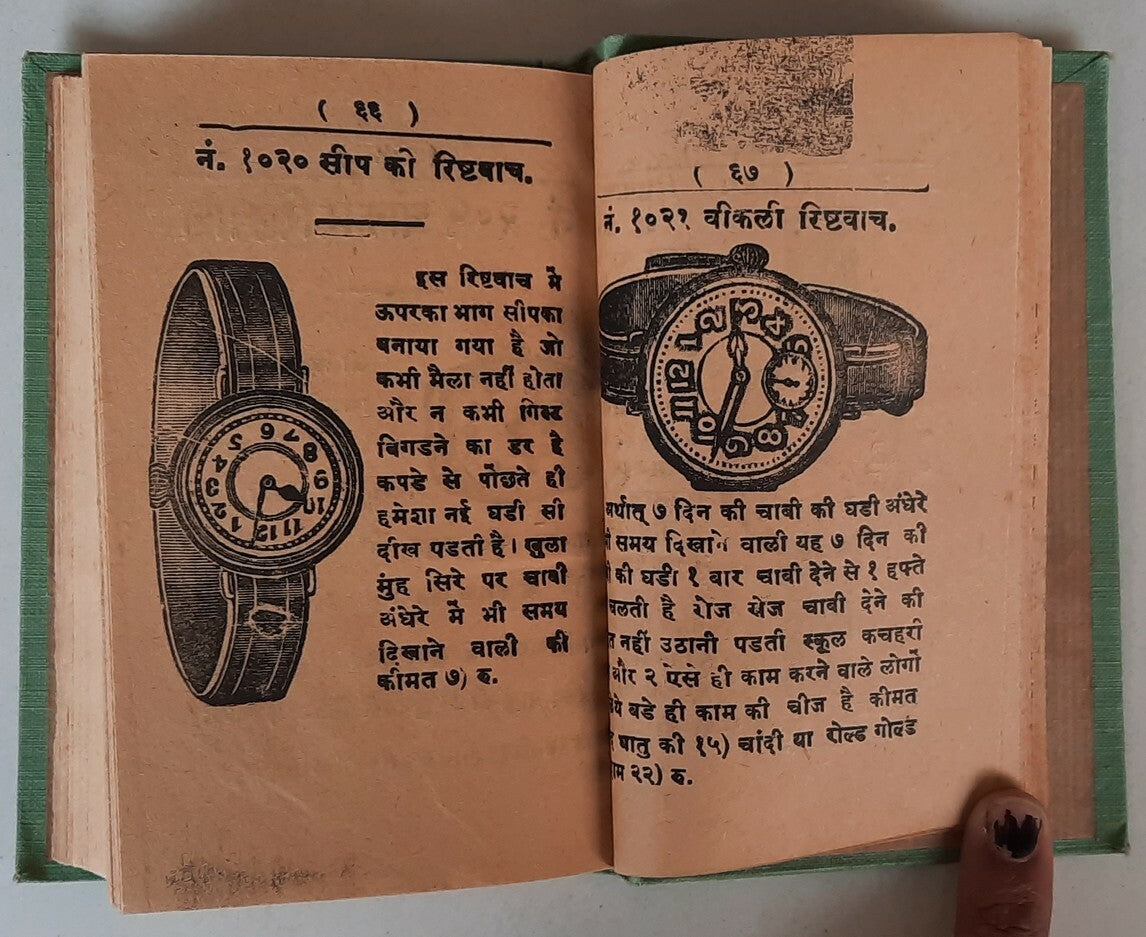 ( ६६ )
नं. १०२० सीप को रिष्टवाच.
इस रिष्टवाच मे
ऊपरका भाग सीपका
बनाया गया है जो
कभी मैला नहीं होता
और न कभी गिल्ट
बिगडने का डर है
कपडे से पोंछते ही
हमेशा नई घडी सी
दीख पडती है। खुला
मुंह सिरे पर चाबी
अंधेरे में भी समय
दिखाने वाली की
कीमत ७) रु.
6 7 8 9 10 11 12 1 2 3 4 5
( ६७ )
नं. १०२१ वीकली रिष्टवाच.
1 2 3 4 5 7 8 9 10 11 12
अर्थात् ७ दिन की चाबी की घडी अंधेरे
समय दिखाने वाली यह ७ दिन की
की घडी १ बार चाबी देने से १ हफ्ते
चलती है रोज रोज चाबी देने की
नहीं उठानी पडती स्कूल कचहरी
और २ ऐसे ही काम करने वाले लोगों
बडे ही काम की चीज है कीमत
धातु की १५) चांदी या रोल्ड गोल्ड
२२) रु.